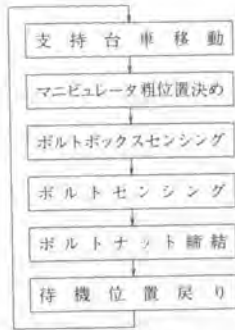 支持台車移動
マニピュレータ粗位置決め
ボルトボックスセンシング
ボルトセンシング
ボルトナット締結
待機位置戻り